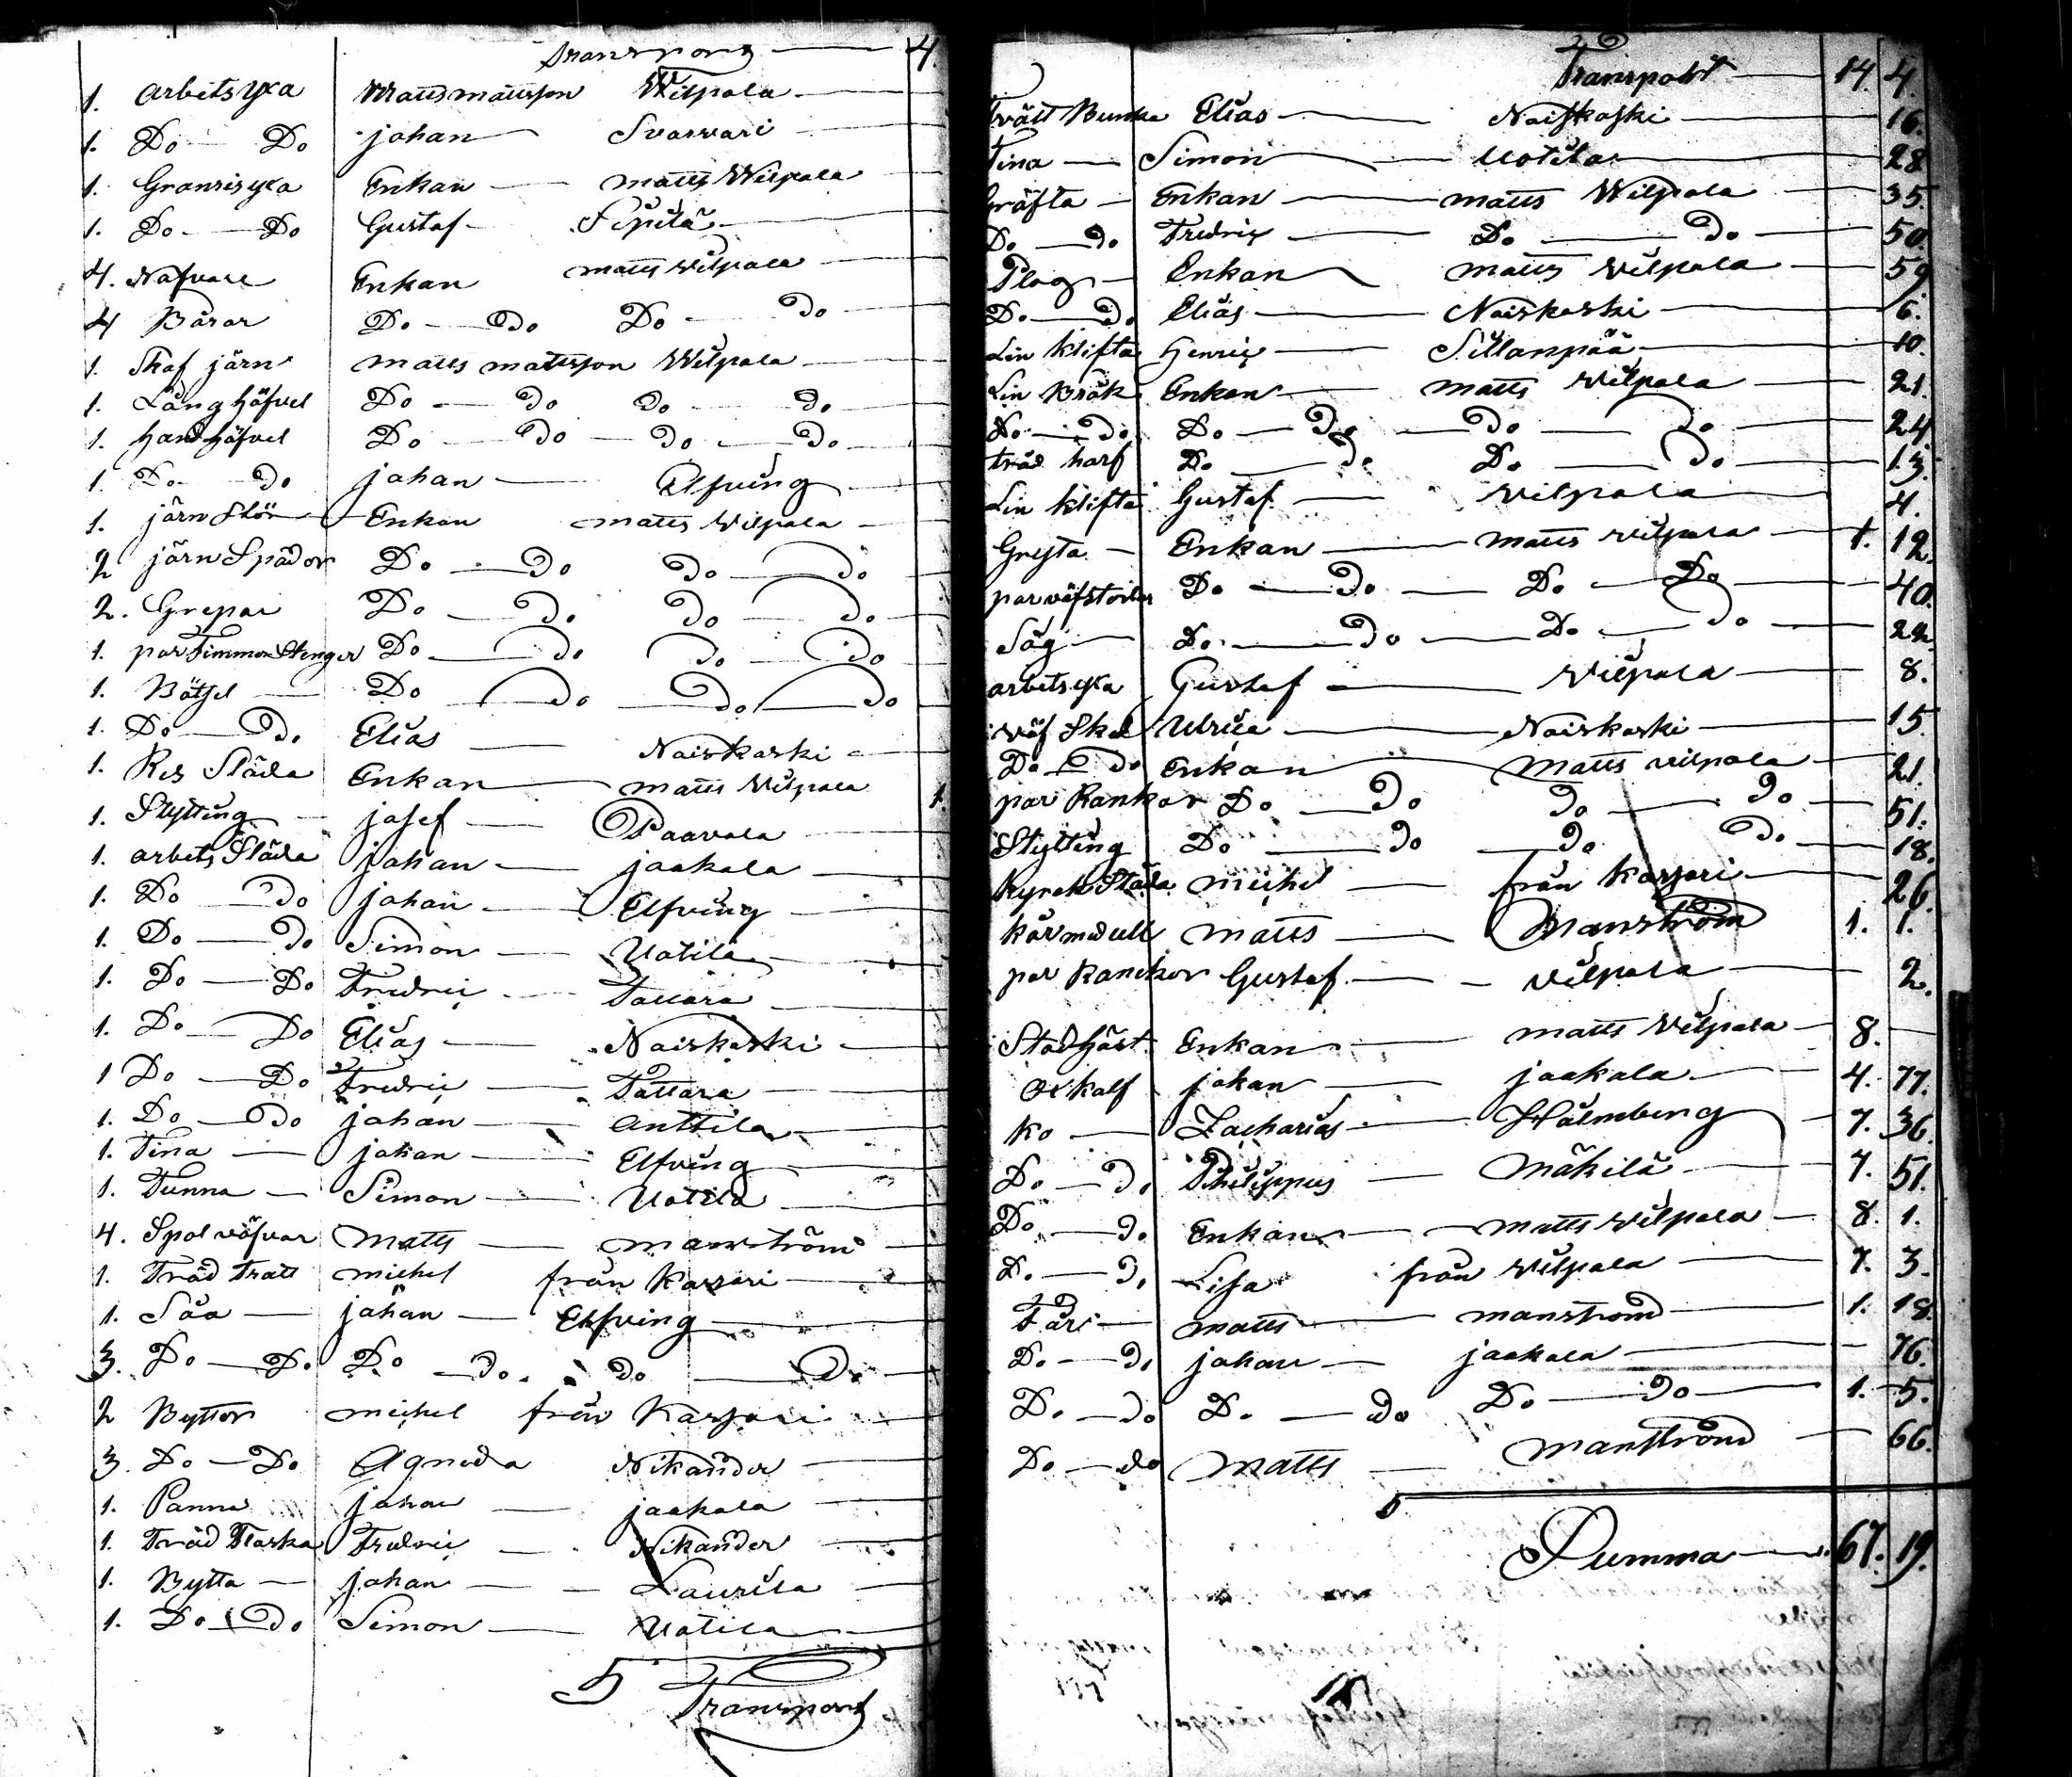 Transport — 4.
1. arbets yxa Matts mattsson Wilpala
1. Do Do johan Svarvari
1. Granris yxa Enkan matts Wilpala
1. Do Do Gustaf Pipilä
4. Nafvare Enkan matts Wilpala
4 Bårar Do Do Do Do
1. Skaf järn matts mattsson Wilpala
1. Lång höfvel Do Do Do Do
1. hand höfvel Do Do Do Do
1. Do Do johan Elfving
1. järn Stör Enkan matts Wilpala
2 järn Spador Do Do Do Do
2. Grepar Do Do Do Do
1. par Timmer Stenger Do Do Do Do
1. Bötsel Do Do Do Do
1. Do Do Elias Naiskoski
1. Res Släda Enkan matts Vilpala 1.
1. Stytting josef Paavola
1. arbets Släda johan jaakala
1. Do Do johan Elfving
1. Do Do Simon Uotila
1. Do Do Fredric Tattara
1. Do Do Elias Naiskoski
1 Do Do Fredric Tattara
1. Do Do johan Anttila
1. Tina johan Elfving
1. Tunna Simon Uotila
4. Spol väfvar Matts manström
1. Träd Tratt michel från Karjari
1. Såa johan Elfving
3. Do Do Do Do Do Do
2 Byttor michel från Karjari
3. Do Do Agneda Nikander
1. Panna johan jaakala
1. Träd Flaska Fredric Nikander
1. Bytta johan Laurila
1. Do Do Simon Uotila
Transport
Transport 14. 4.
Tvätt Bunka Elias Naiskoski 16.
Tina Simon Uotila 28
Gräfta Enkan matts Wilpala 35.
Do Do Fredric Do Do 50.
Plog Enkan matts Wilpala 59
Do Do Elias Naiskoski 6.
Lin klifta Henric Sillanpää 10.
Lin Bråk Enkan matts Wilpala 21.
Do Do Do Do Do Do 24.
träd harf Do Do Do Do 13.
Lin klifta Gustaf Vilpala 4.
Gryta Enkan matts vilpala 1. 12.
par väfstolar Do Do Do Do 40.
Såg Do Do Do Do 22.
arbets yxa Gustaf Vilpala 8.
väf Sked Ulrica Naiskoski 15.
Do Do Enkan Matts vilpala 21.
par Rankor Do Do Do Do 51.
Stytting Do Do Do Do 18.
Kyrck Släda michel från Karjari 26.
matts Manström 1. 1.
par Ranckor Gustaf vilpala 2.
Stod häst Enkan matts Vilpala 8.
Ox kalf johan jaakala 4. 77.
Ko Zacharias Hålmberg 7. 36.
Do Do Philippus Mäkilä 7. 51.
Do Do Enkan matts Vilpala 8. 1.
Do Do Lisa från Vilpala 7. 3.
Får matts manström 1. 18.
Do Do johan jaakala 76.
Do Do Do Do Do Do 1. 5.
Do do matts manström 66.
Summa 67. 19.